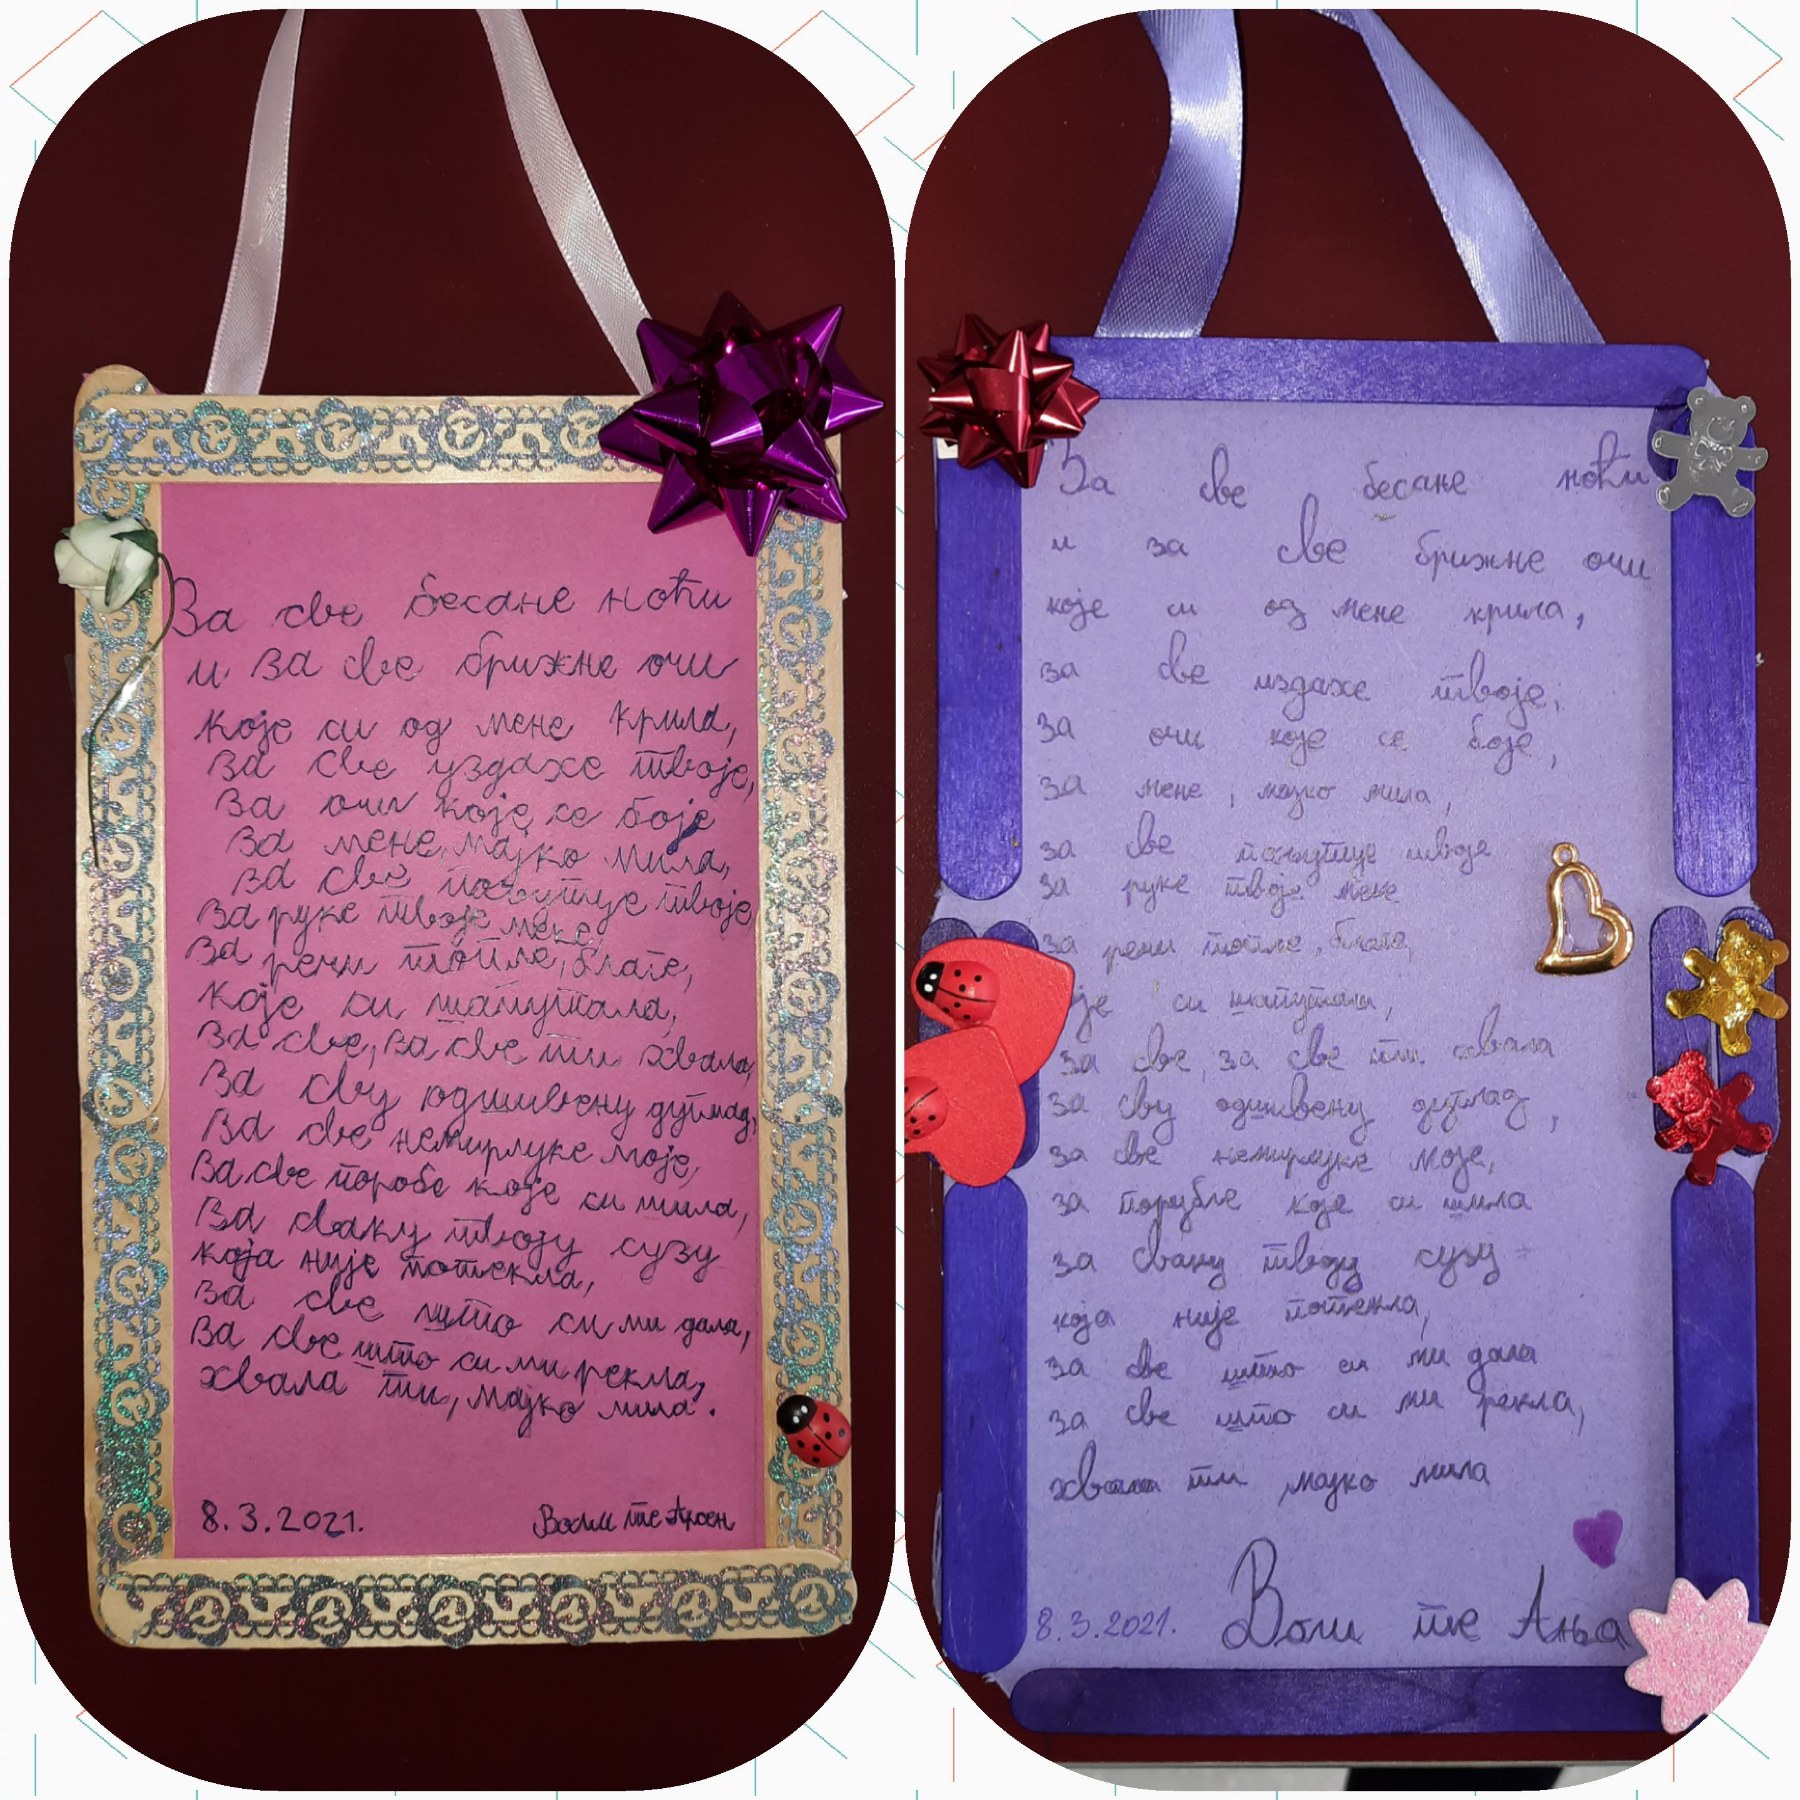 За све бесане ноћи
и за све брижне очи
које си од мене крила,
За све уздахе твоје,
За очи које се боје
За мене, мајко мила,
За све повутије твоје,
За руке твоје меке,
За речи топле, благе,
које си шапутала,
За све, за све ти хвала,
За сву одшивену дугмад,
За све немирлуке моје,
За све поробе које си шила,
За сваку твоју сузу
која није потекла,
За све што си ми дала,
За све што си ми рекла,
хвала ти, мајко мила.
8.3.2021. Воли те Арсен
За све бесане ноћи
и за све брижне очи
које си од мене крила,
за све издахе твоје,
за очи које се боје,
за мене, мајко мила,
за све твоје
за руке твоје меке
за речи топле, благе,
је си шапутала,
за све, за све ти хвала
за сву одшивену дугмад,
за све немирлуке моје,
за порубле које си шила
за сваку твоју сузу
која није потекла,
за све што си ми дала
за све што си ми рекла,
хвала ти, мајко мила
8.3.2021. Воли те Ања